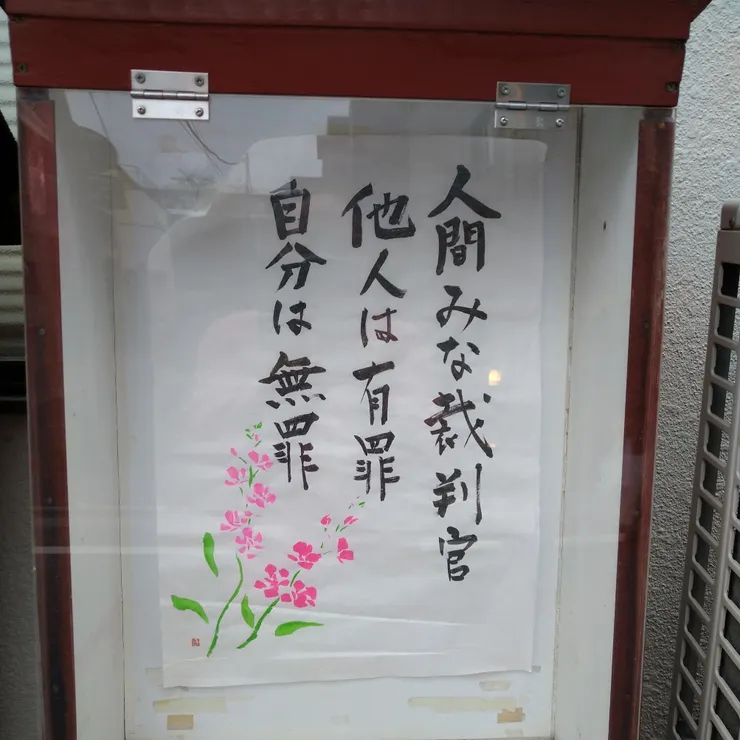 人間みな裁判官
他人は有罪
自分は無罪